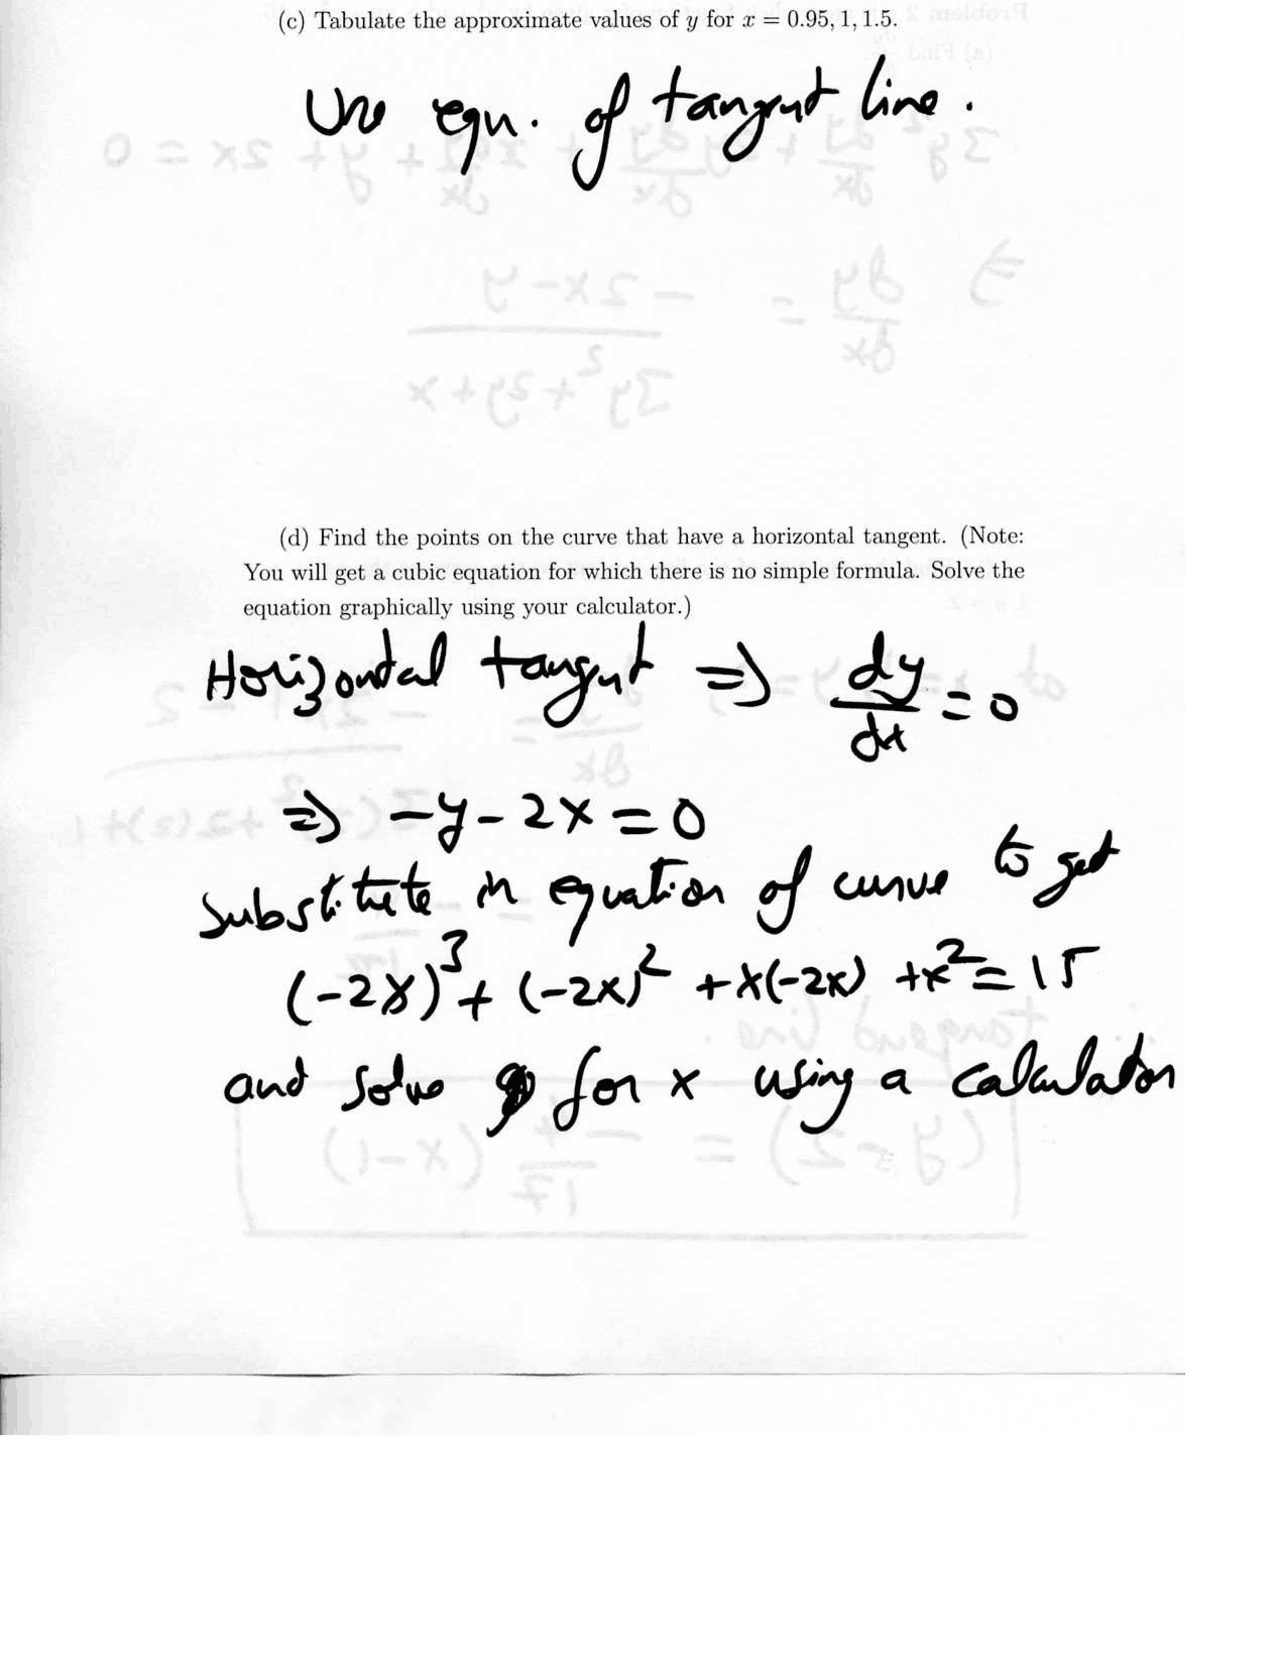 (c) Tabulate the approximate values of y for x = 0.95, 1, 1.5.
Use eqn. of tangent line.
(d) Find the points on the curve that have a horizontal tangent. (Note:
You will get a cubic equation for which there is no simple formula. Solve the
equation graphically using your calculator.)
Horizontal tangent ⇒ dy/dx = 0
⇒ -y - 2x = 0
Substitute in equation of curve to get
(-2x)³ + (-2x)² + x(-2x) + x² = 15
and solve for x using a calculator